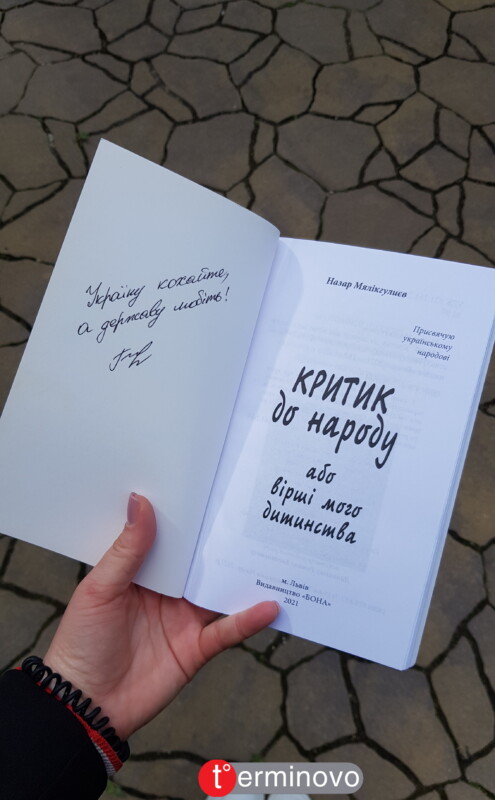 Україну кохайте,
а державу любіть!
Назар Мялікгулиєв
Присвячую
українському
народові
КРИТИК
до народу
або
вірші мого
дитинства
м. Львів
Видавництво «БОНА»
2021
t°erminovo